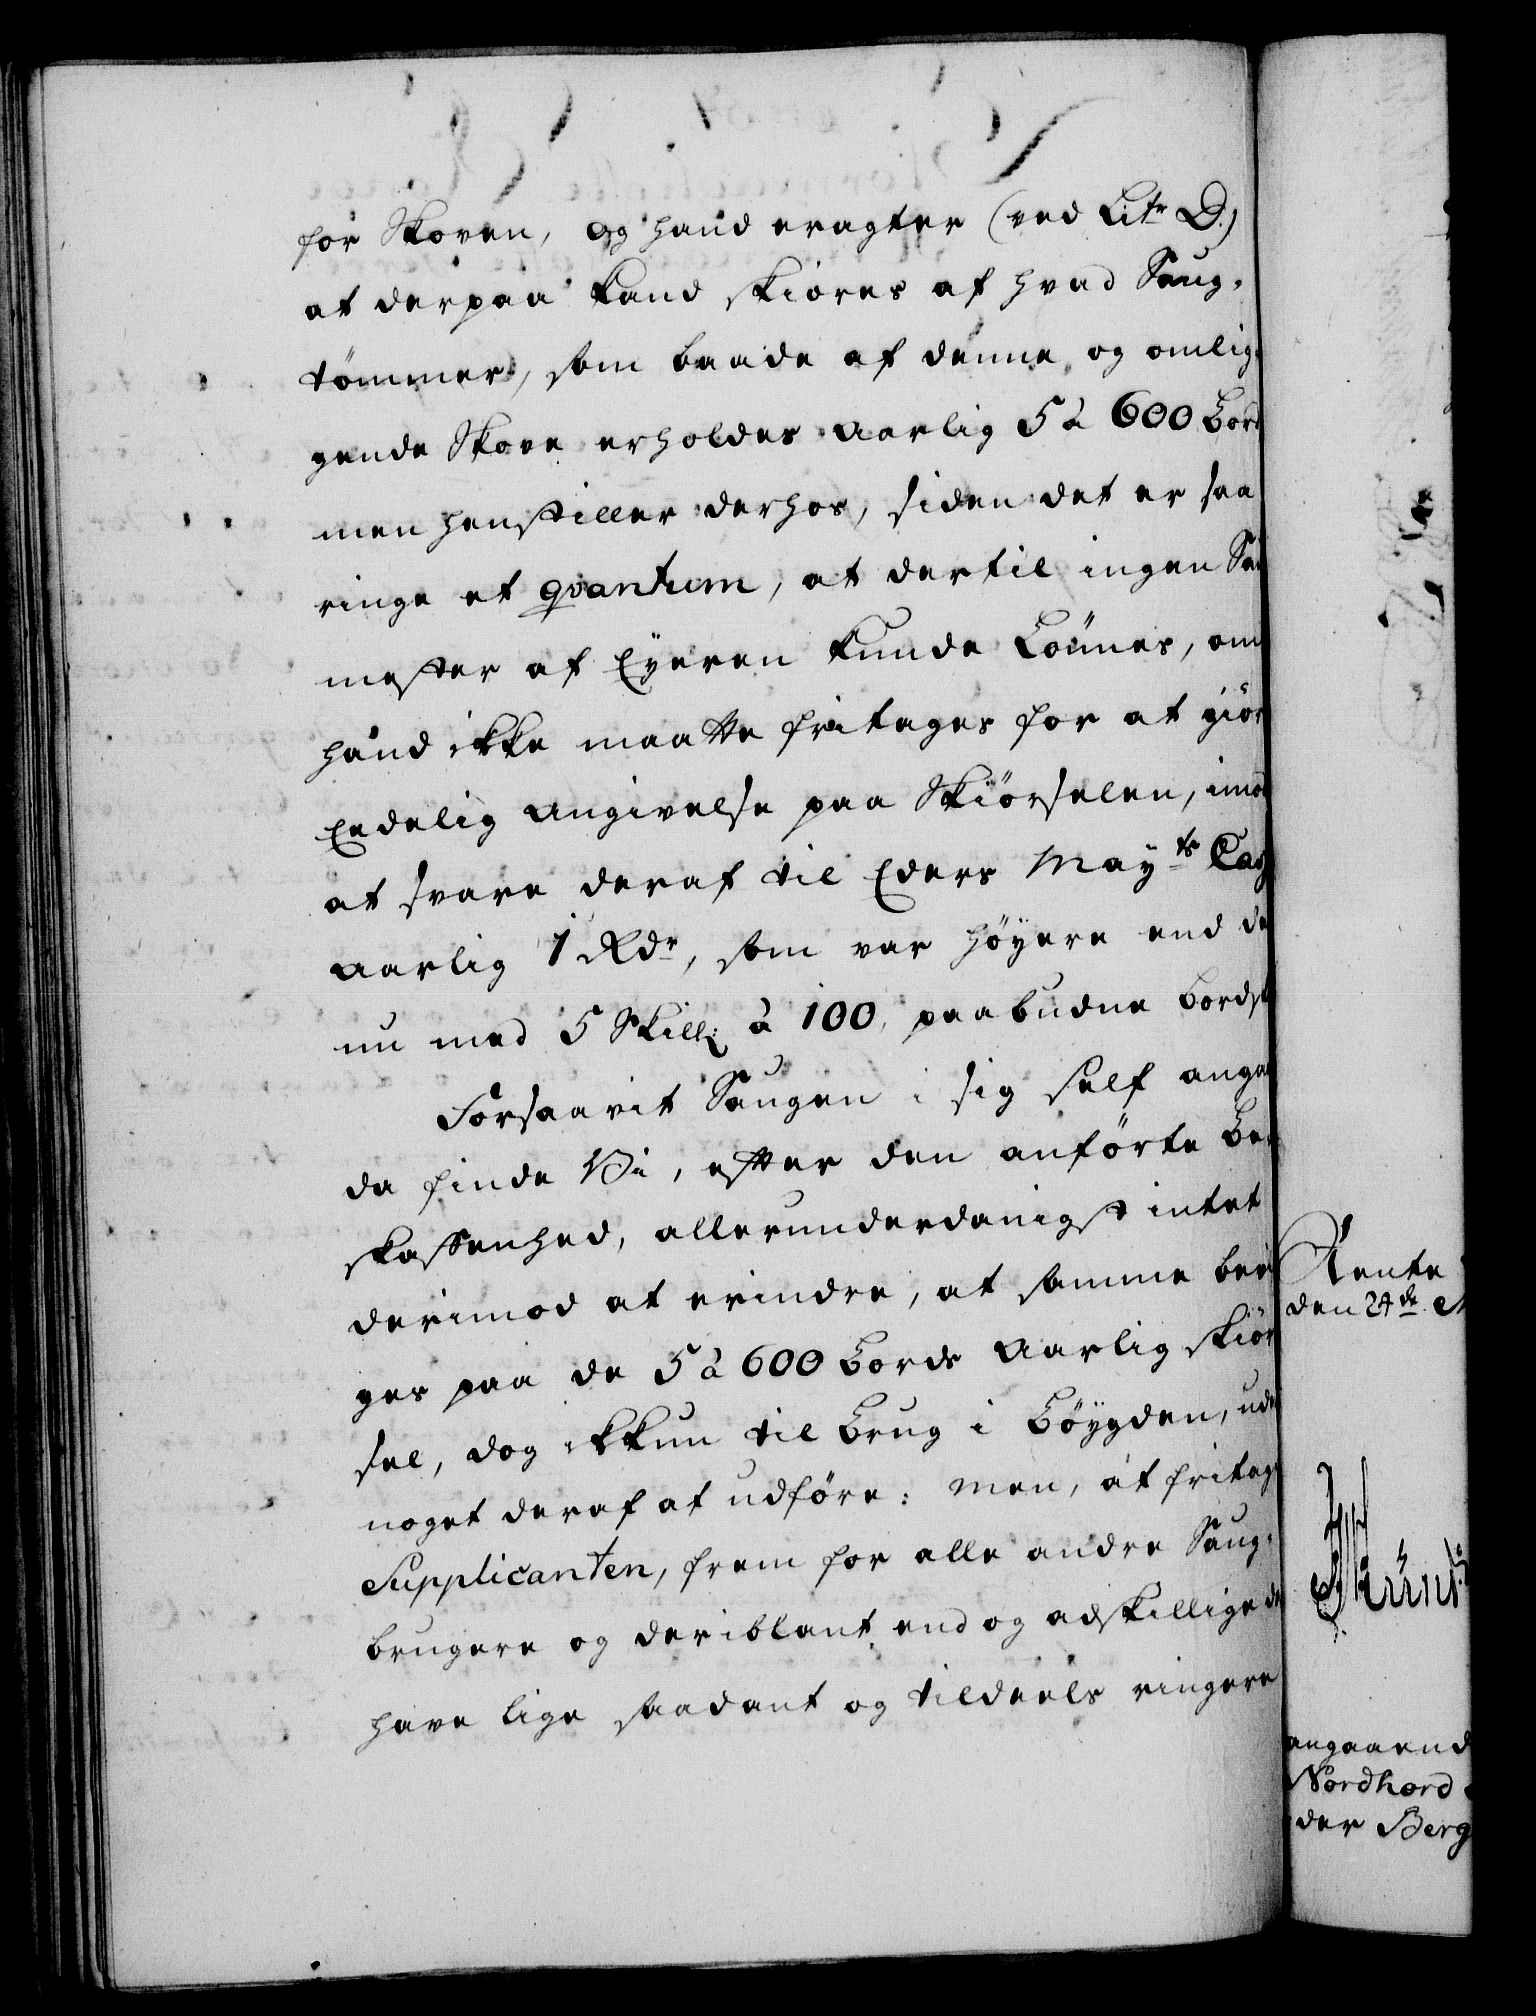 for Skoven, og hand eragter (ved Litr D.)
at derpaa kand skiores af hvad Saug-
tömmer, som baade af denne og omlig-
gende Skove erholdes aarlig 5 à 600 Bord
men henstiller derhos, siden det er saa
ringe et qvantum, at dertil ingen
mester af Eyeren kunde Lönnes, om
hand ikke maatte fritages for at giör
Eedelig Angivelse paa Skiörselen, imod
at svare deraf til Eders Mayts
aarlig 1 Rdr, som var höyere end
nu med 5 Skill: à 100 paabudne
Forsaavit Saugen i sig self anga
da finde Vi, efter den anförte Be-
skaffenhed, allerunderdanigst intet
derimod at erindre, at samme
ges paa de 5 à 600 Bords aarlig skiör
sel, dog ikkun til Brug i Böygden, ude
noget deraf at udföre: Men, at fritag
Supplicanten, frem for alle andre Saug-
brugere og deriblant end og adskillige de
have lige saadant og tildeels ringere
Rente
den 24de
angaaend
Nordhord
der Berg